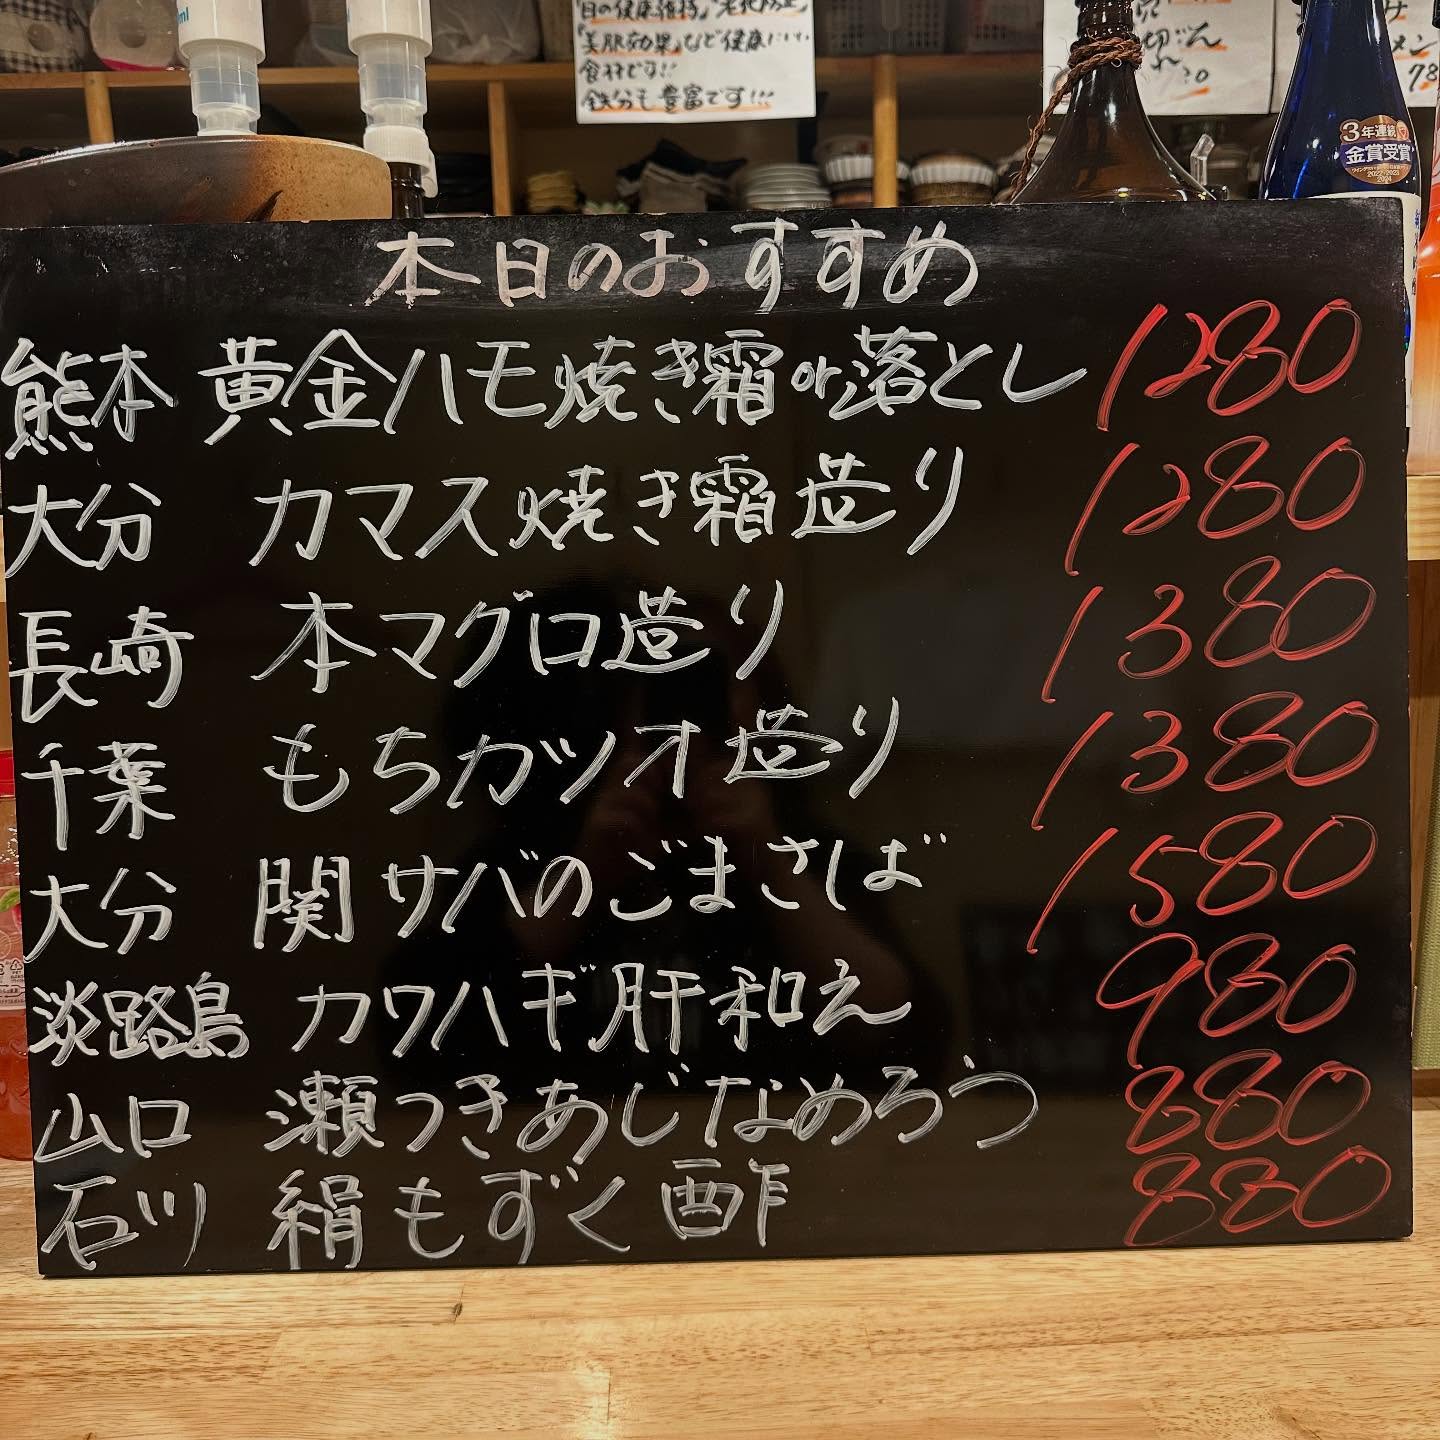 日の健康維持」「老化防止」
「美肌効果」など健康にいい
食材です!!
鉄分も豊富です!!!
メン
78
3年連続
金賞受賞
2022・2023
2024
本日のおすすめ
熊本 黄金ハモ焼き霜or落とし 1280
大分 カマス焼き霜造り 1280
長崎 本マグロ造り 1380
千葉 もちガツオ造り 1380
大分 関サバのごまさば 1580
淡路島 カワハギ肝和え 980
山口 瀬つきあじなめろう 880
石川 絹もずく酢 880